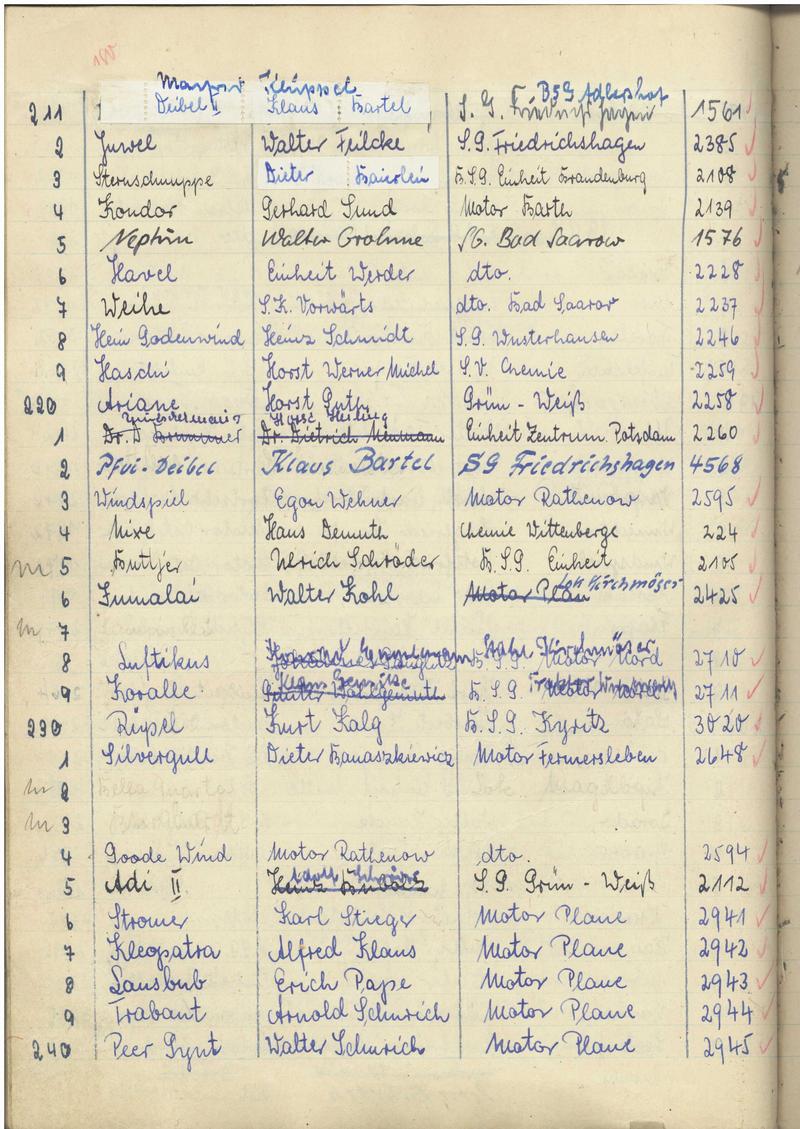 Klüppel BSG Adlershof
211 Deibel II Klaus Bartel S. G. 1561
2 Juwel Walter Feilcke S.G. Friedrichshagen 2385
3 Sternschnuppe Dieter B.S.G. Einheit Brandenburg 2108
4 Kondor Gerhard Sund Motor Barth 2139
5 Neptun Walter Grohme SG. Bad Saarow 1576
6 Havel Einheit Werder dto. 2228
7 Weihe S.K. Vorwärts dto. Bad Saarow 2237
8 Hein Godenwind Heinz Schmidt S.G. Wusterhausen 2246
9 Haschi Horst Werner Michel S.V. Chemie 2259
220 Ariane Horst Guth Grün - Weiß 2258
1 Dr. D Dr. Dietrich Neumann Einheit Zentrum Potsdam 2260
2 Pfui-Deibel Klaus Bartel SG Friedrichshagen 4568
3 Windspiel Egon Wehner Motor Rathenow 2595
4 Nixe Hans Demuth Chemie Wittenberge 224
m 5 Buttjer Ulrich Schröder B.S.G. Einheit 2105
Lok Kirchmöser
6 Walter Kohl Motor Plau 2425
m 7
Stahl Kirchmöser
8 Luftikus B.S.G. Motor Nord 2710
9 Koralle B.S.G. Motor 2711
230 Rüpel Kurt Kalg B.S.G. Kyritz 3020
1 Silvergull Dieter Banaszkiewicz Motor Fermersleben 2648
m 2
m 3
4 Goode Wind Motor Rathenow dto. 2594
5 Adi II S.G. Grün - Weiß 2112
6 Stromer Karl Stieger Motor Plane 2941
7 Kleopatra Alfred Klaus Motor Plane 2942
8 Lausbub Erich Pape Motor Plane 2943
9 Trabant Arnold Schurich Motor Plane 2944
240 Peer Gynt Walter Schurich Motor Plane 2945